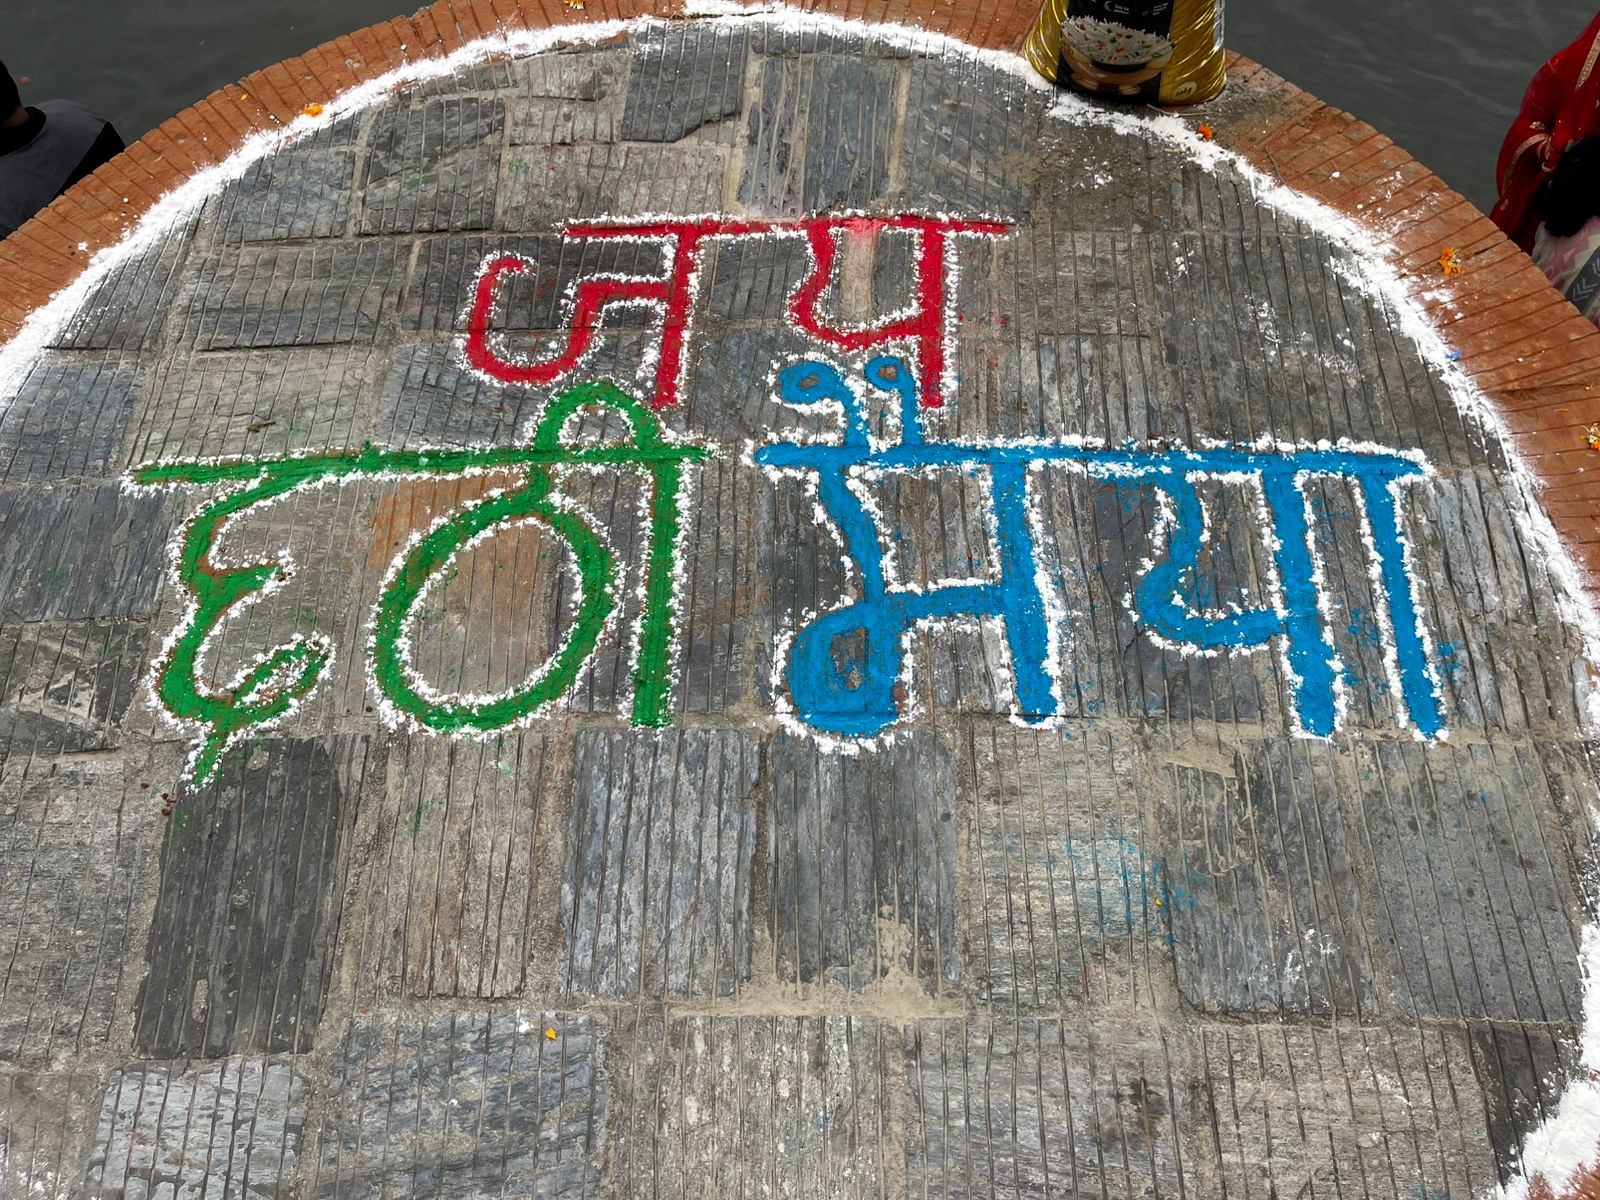 जय
छठी मैया